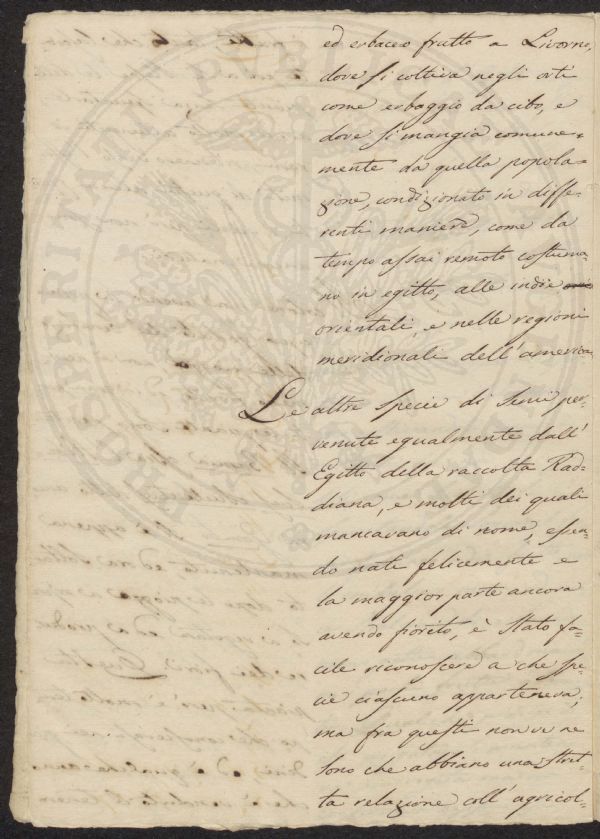 ed erbaceo frutto a Livorno,
dove si coltiva negli orti
come erbaggio da cibo, e
dove si mangia comune-
mente da quella popola-
zione, condizionato in diffe-
renti maniere, come da
tempo assai remoto costuma-
no in egitto, alle indie
orientali, e nelle regioni
meridionali dell'america.
Le altre specie di Semi per-
venute egualmente dall'
Egitto della raccolta Rad-
diana, e molti dei quali
mancavano di nome, essen-
do nati felicemente e
la maggior parte ancora
avendo fiorito, è stato fa-
cile riconoscere a che spe-
cie ciascuno apparteneva;
ma fra questi non ve ne
sono che abbiano una stret-
ta relazione coll'agricol-
PROSPERITATI PUBLICAE